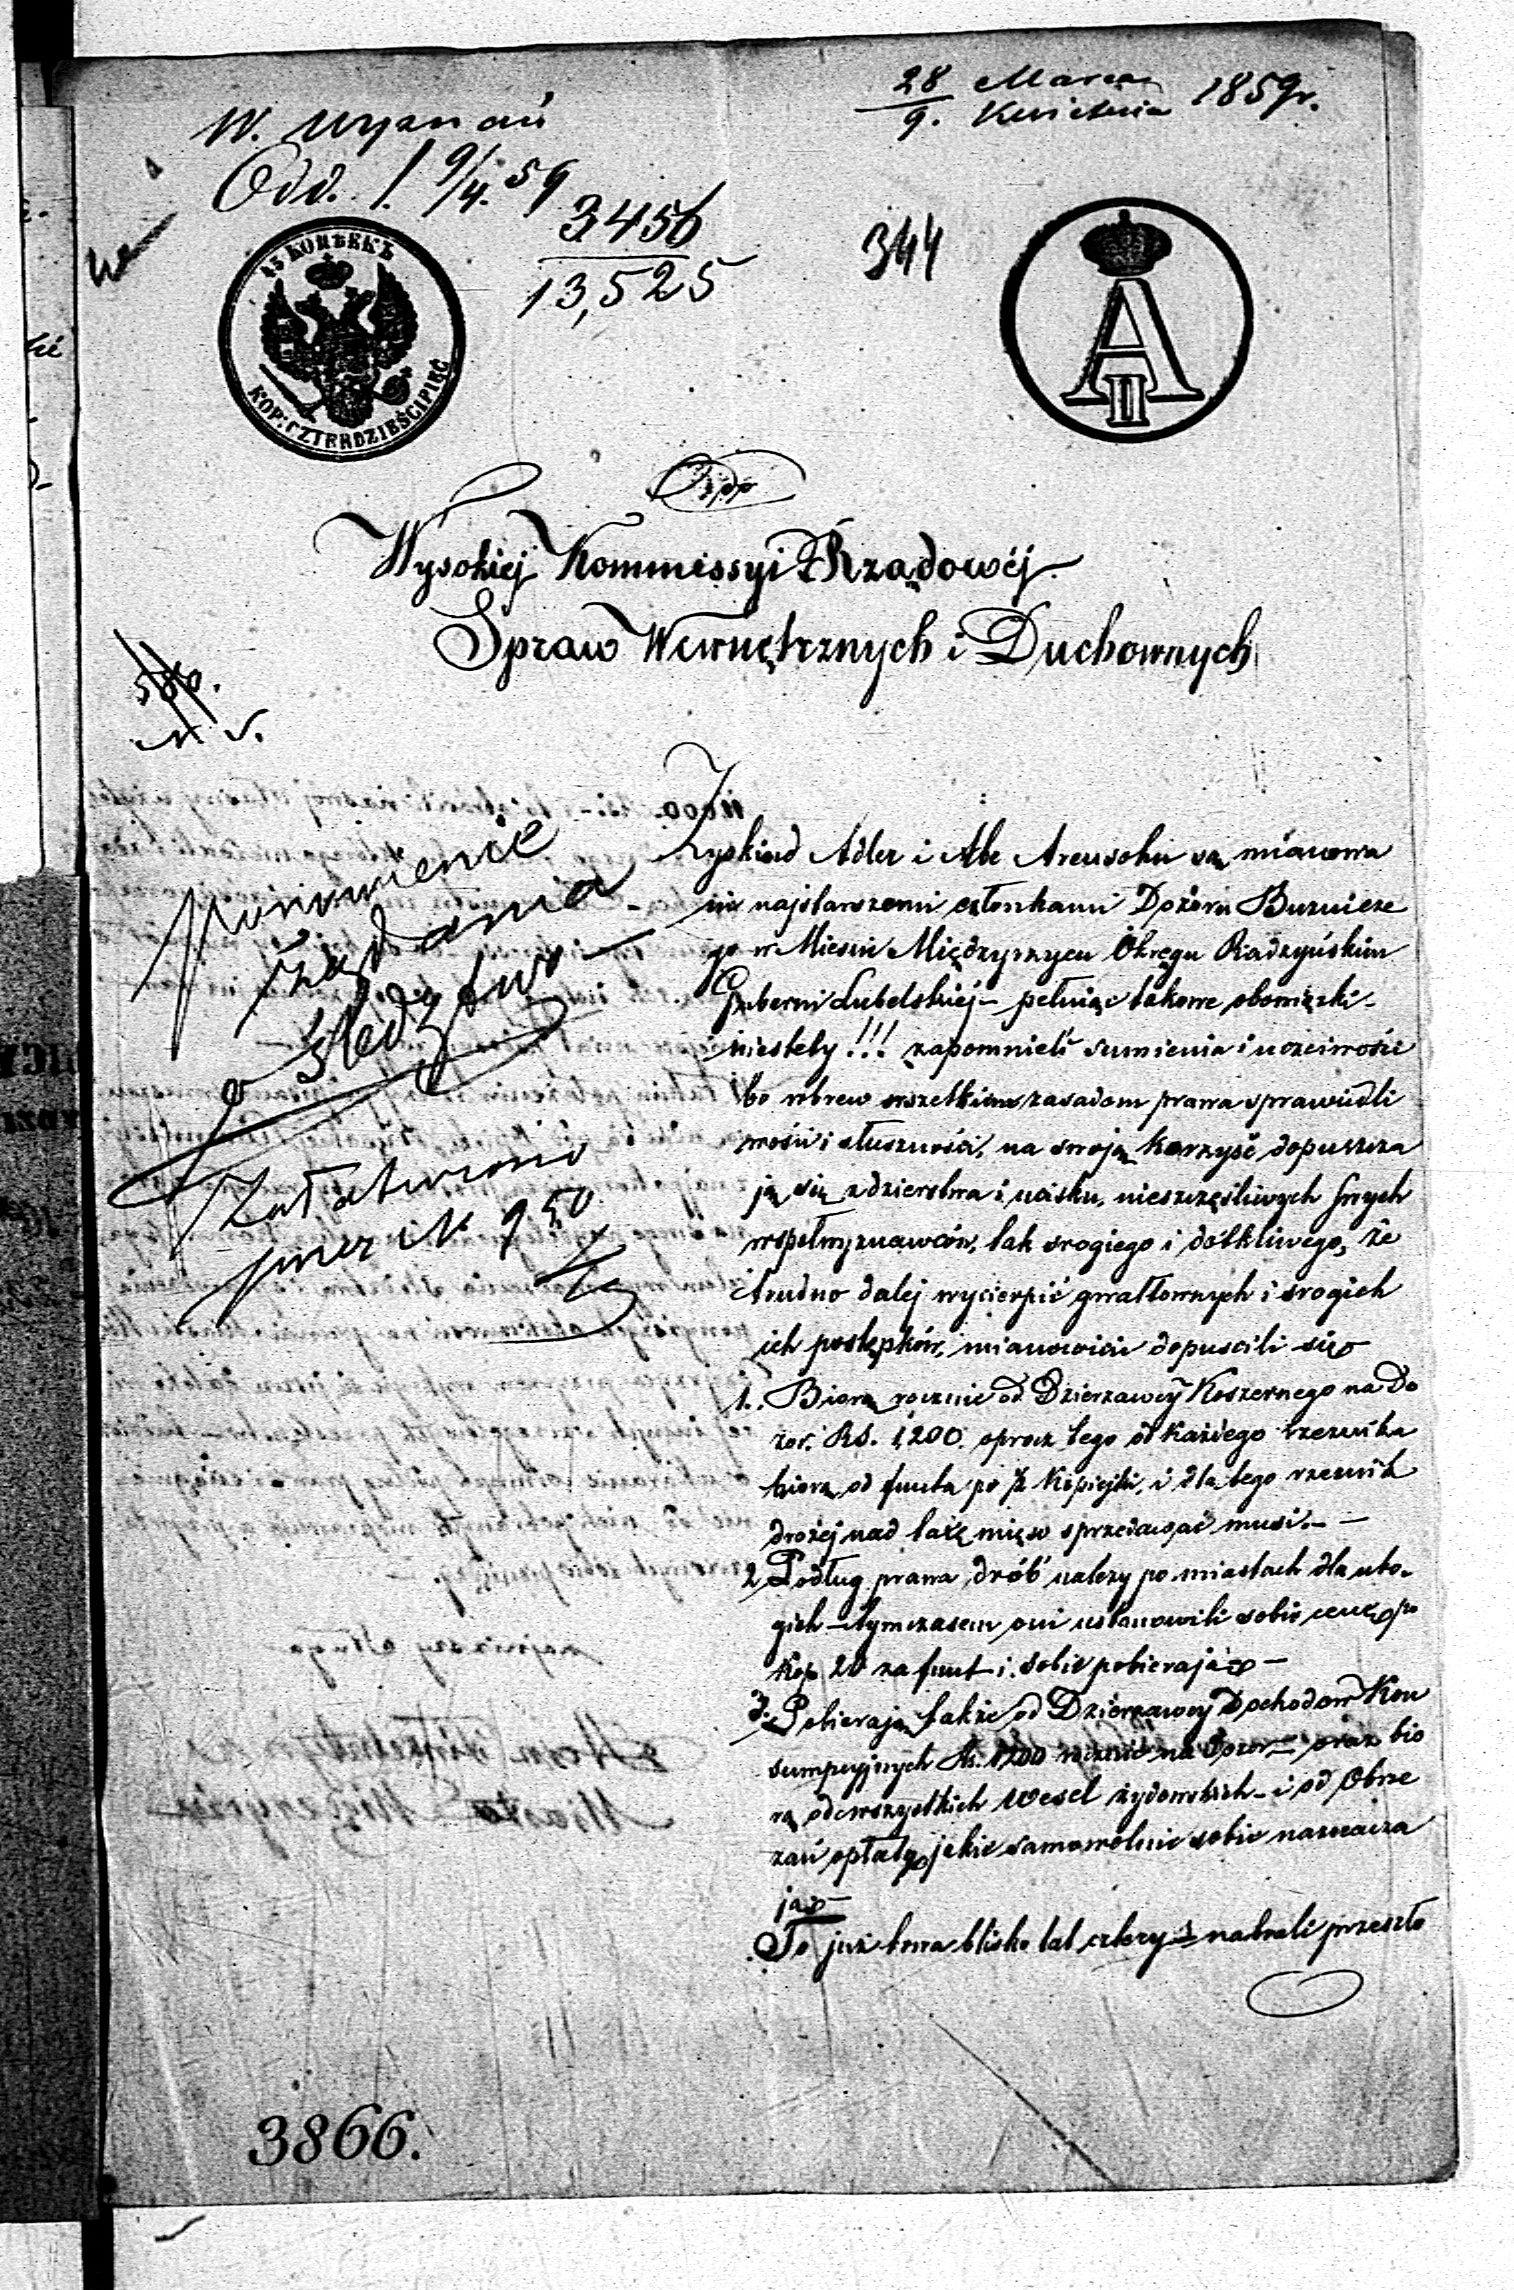 28 Marca
9. Kwietnia 1859r.
W. Wyznań
Odd. 1. 9/4. 59
3456
13,525
344
45 КОПѢЕКЪ
KOP: CZTERDZIEŚCI PIĘĆ
A II
Wysokiej Kommissyi Rządowéj
Spraw Wewnętrznych i Duchownych
Ponowienie
żądania
o śledztwo
Załatwiono
przez N 950
Zyskind Adler i Abe Areusohn są mianowa
ni najstarszemi członkami Dozoru Bużnicze
go w Mieście Międzyrzycu Okręgu Radzyńskim
Gubernii Lubelskiéj – pełniąc takowe obowiązki –
niestety!!! zapomnieli sumienia i uczciwości
bo wbrew wszelkim zasadom prawa sprawiedli
wości i słuszności, na swoją korzyść dopuszcza
ją się zdzierstwa i ucisku, nieszczęśliwych swych
współwyznawców, tak srogiego i dotkliwego, że
trudno dalej wycierpić gwałtownych i srogich
ich postępków, mianowicie dopuscili się
1. Biorą rocznie od Dzierzawcy Koszernego na Do
zór. RS. 1,200. oprocz tego od każdego rzeznika
biorą od funta po ½ Kopiejki, i dla tego rzeznik
drożej nad taxę mięso sprzedawać musi. –
2 Podług prawa drób należy po miastach dla ubo-
gich – tymczasem oni ustanowili sobie cenę po
Kop 20 za funt i sobie pobierają –
3. Pobierają także od Dzierzawcy Dochodow Kon
sumpcyjnych Rs. 1200 rocznie na Dozor – oraz bio
rą od wszystkich Wesel żydowskich – i od Obrze
zań opłatę, jakie samowolnie sobie naznacza
ją –
To już trwa blisko lat cztery i nabrali przeszło
3866.